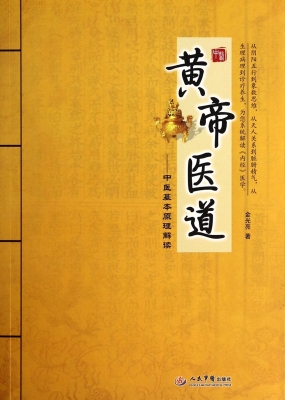 黄帝医道
中医基本原理解读
从阴阳五行到象数思维，从天人关系到脏腑精气，从
生理病理到诊疗养生，为您系统解读《内经》医学。
金光亮 著
人民军医出版社